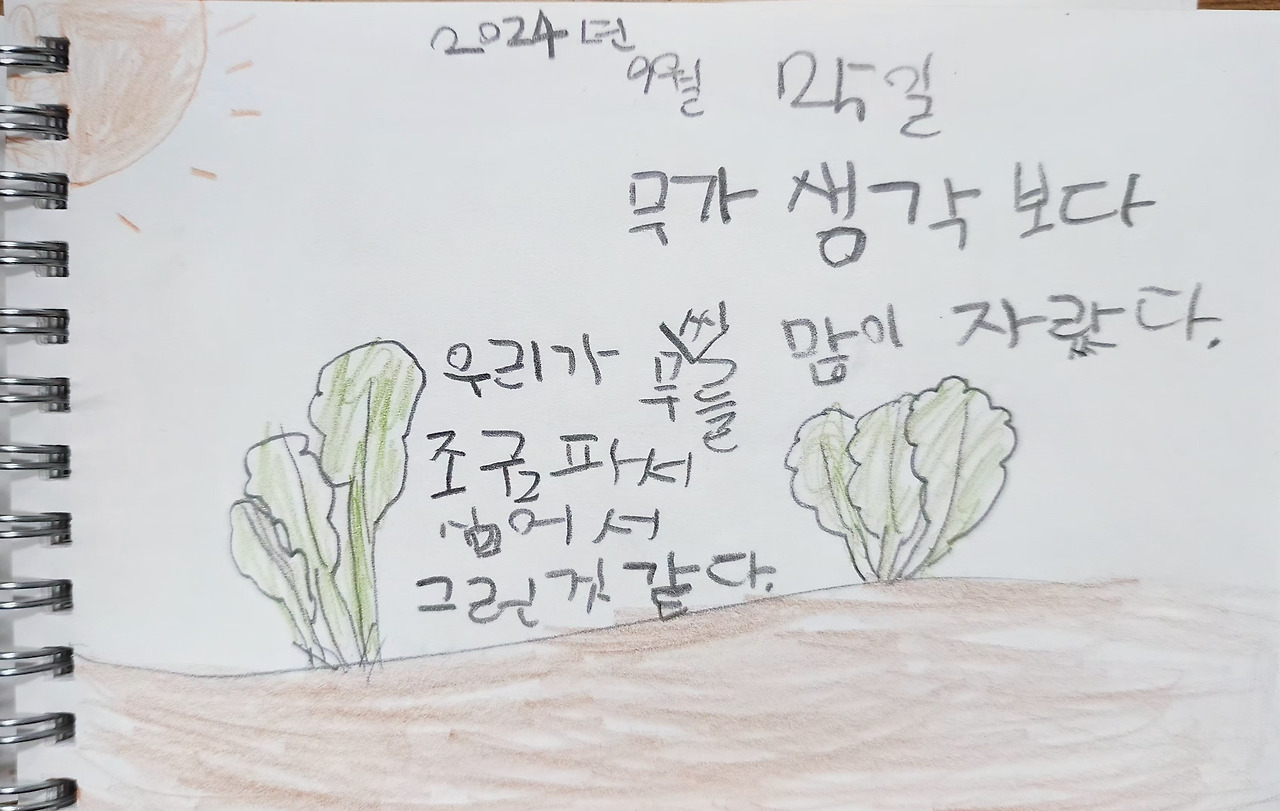 2024년
9월
무가 생각 보다
많이 자랐다.
우리가
조금 파서
심어서
그런것 같다.